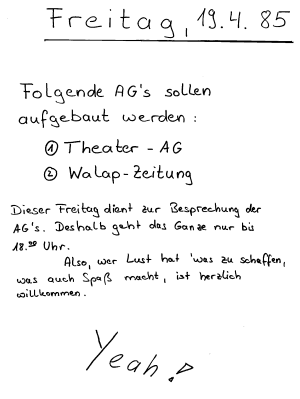 Freitag, 19.4.85
Folgende AG's sollen
aufgebaut werden:
① Theater - AG
② Walap-Zeitung
Dieser Freitag dient zur Besprechung der
AG's. Deshalb geht das Ganze nur bis
18.30 Uhr.
Also, wer Lust hat 'was zu schaffen,
was auch Spaß macht, ist herzlich
willkommen.
Yeah!